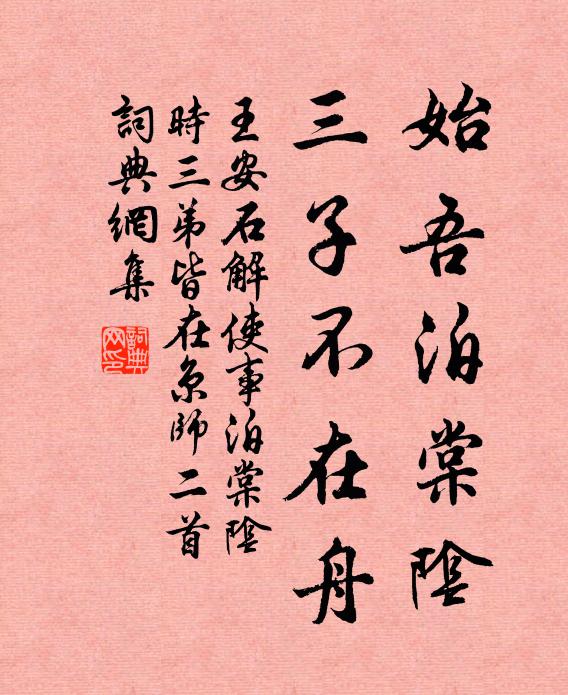 始吾泊棠陰
三子不在舟
王安石解使事泊棠陰
時三弟皆在京師二首
詞典網集
詞典网印